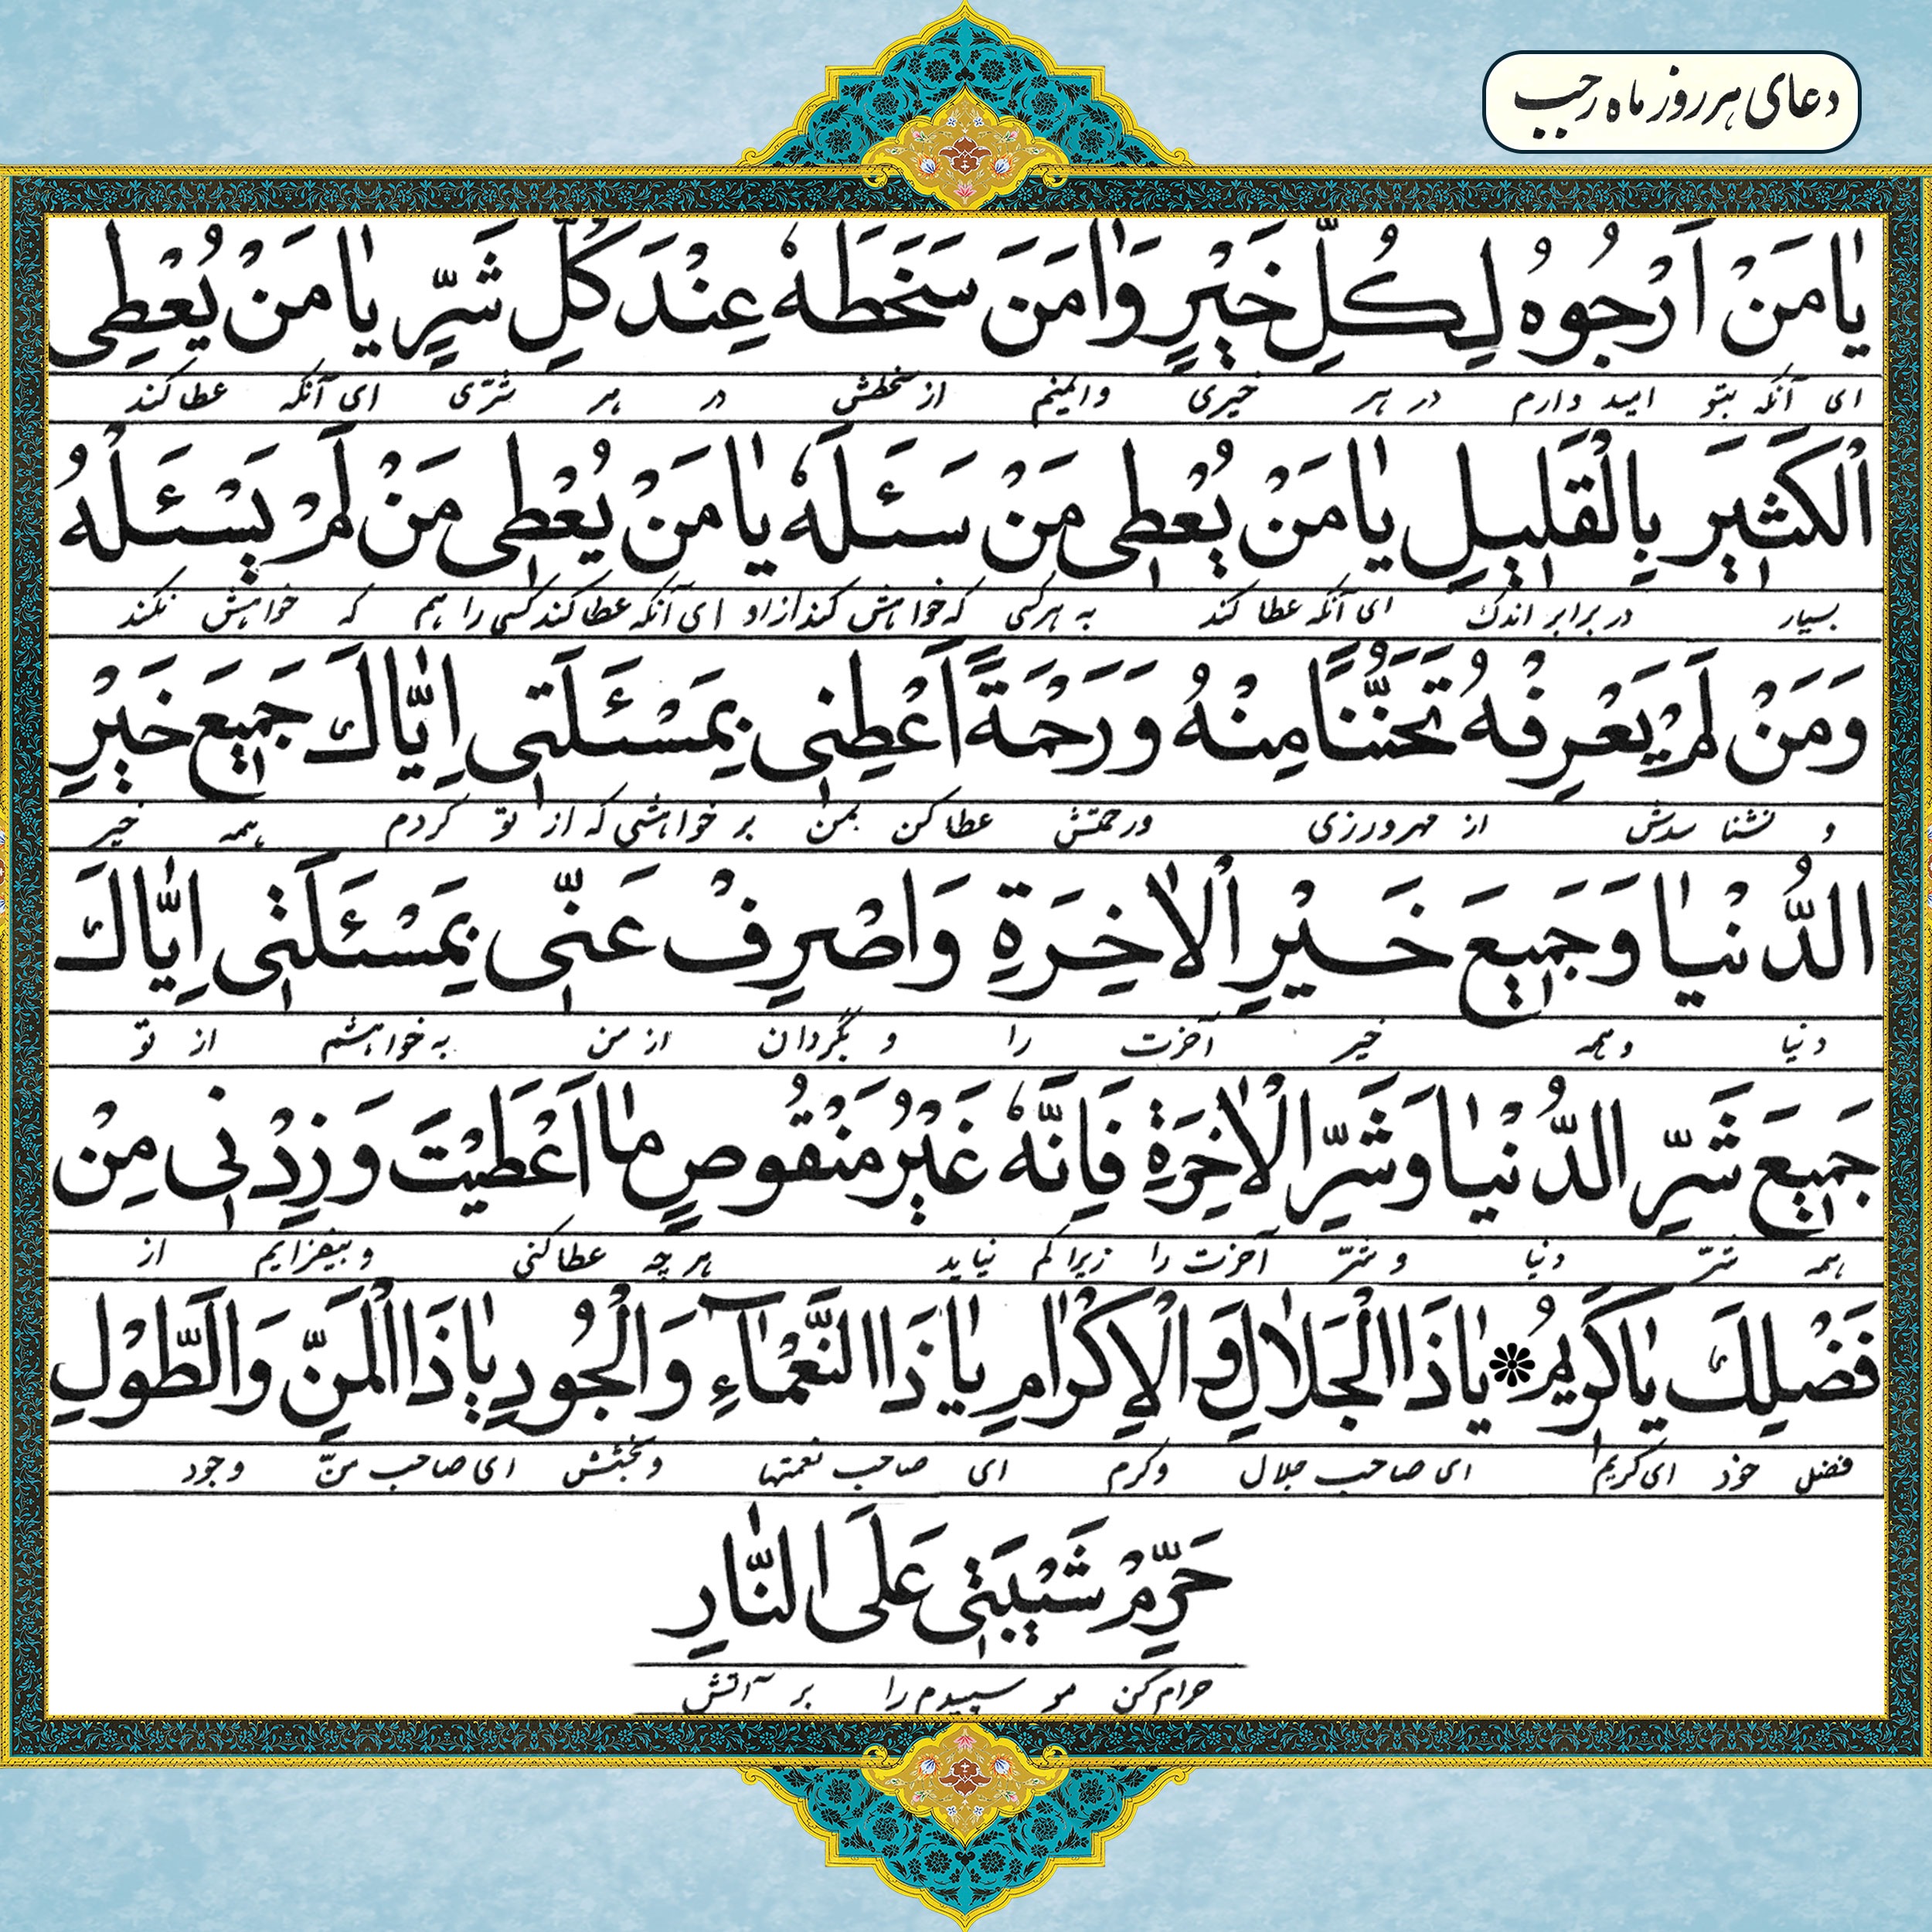 دعای هر روز ماه رجب
یٰا مَنْ اَرْجُوهُ لِکُلِّ خَیْرٍ وَاٰمَنَ سَخَطَهُ عِنْدَ کُلِّ شَرٍّ یٰا مَنْ یُعْطِی
ای آنکه بتو امید دارم در هر خیری وایمنم از سخطش در هر شرّی ای آنکه عطا کند
اْلکَثیٖرَ بِالْقَلیٖلِ یٰا مَنْ یُعْطیٖ مَنْ سَئَلَهُ یٰا مَنْ یُعْطیٖ مَنْ لَمْ یَسْئَلْهُ
بسیار در برابر اندک ای آنکه عطا کند به هرکسی که خواهش کند از او ای آنکه عطا کند کسی را هم که خواهش نکند
وَمَنْ لَمْ یَعْرِفْهُ تَحَنُّنًا مِنْهُ وَرَحْمَةً اَعْطِنیٖ بِمَسْئَلَتیٖ اِیّٰاکَ جَمیٖعَ خَیْرِ
و نشناسدش از مهرورزی ورحمتش عطا کن بمن بر خواهشی که از تو کردم همه خیر
الدُّنْیٰا وَجَمیٖعَ خَیْرِ اْلاٰخِرَةِ وَاصْرِفْ عَنّیٖ بِمَسْئَلَتیٖ اِیّٰاکَ
دنیا وهمه خیر آخرت را و بگردان از من به خواهشم از تو
جَمیٖعَ شَرِّ الدُّنْیٰا وَشَرِّ الْاٰخِرَةِ فَاِنَّهُ غَیْرُ مَنْقُوصٍ مٰا اَعْطَیْتَ وَزِدْنیٖ مِنْ
همه شرّ دنیا و شرّ آخرت را زیرا کم نیاید هر چه عطا کنی و بیفزایم از
فَضْلِکَ یٰا کَریٖمُ ❋ یٰا ذَا الْجَلاٰلِ وَ الْاِکْرٰامِ یٰا ذَا النَّعْمٰآءِ وَالْجُودِ یٰا ذَا الْمَنِّ وَالطَّوْلِ
فضل خود ای کریم ای صاحب جلال وکرم ای صاحب نعمتها وبخشش ای صاحب منّ وجود
حَرِّمْ شَیْبَتیٖ عَلَی النّٰارِ
حرام کن مو سپیدم را بر آتش